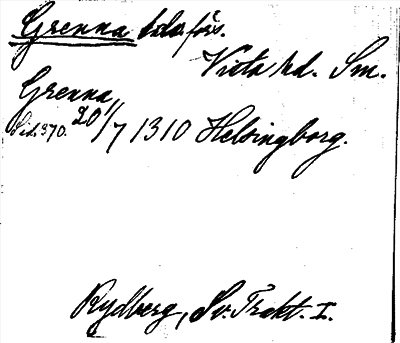 Grenna lda förs.
Vista hd. Sm.
Grenna,
Sid. 370. 20/7 1310 Helsingborg.
Rydberg, Sv. Trakt. I.